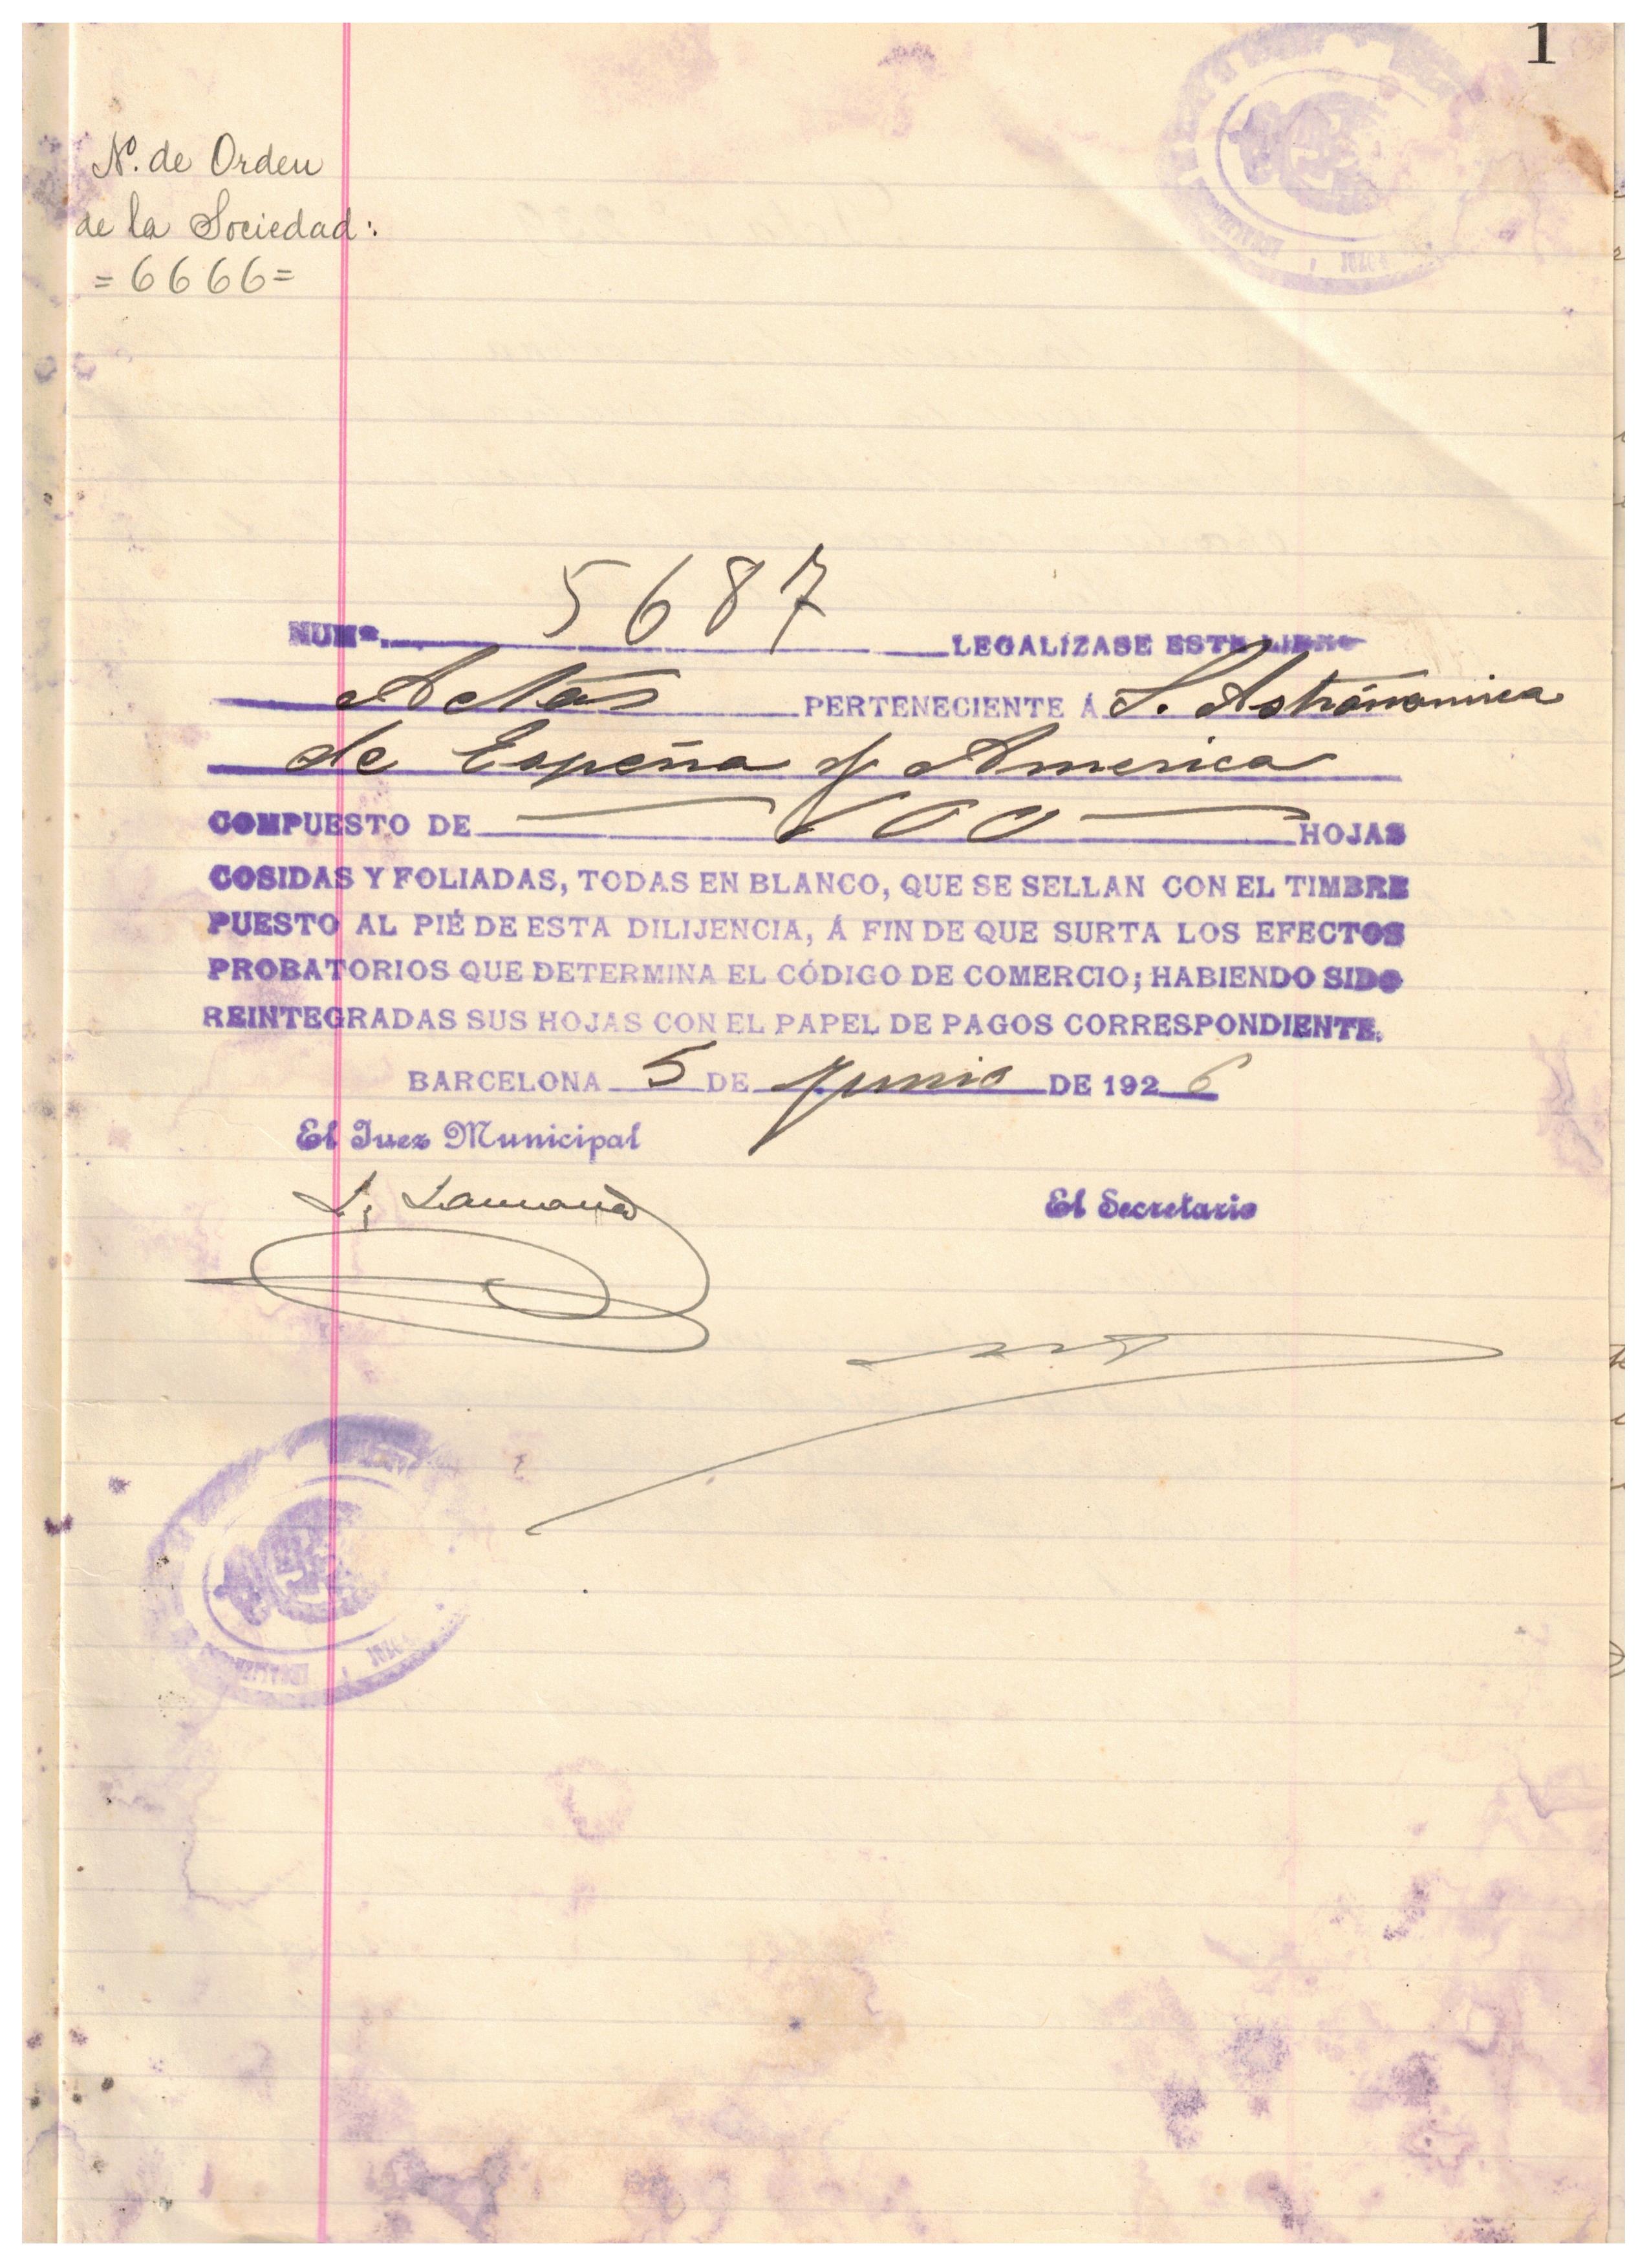 1
Nº. de Orden
de la Sociedad:
=6666=
5687
NUMº. LEGALÍZASE ESTE LIBRO
Actas PERTENECIENTE Á S. Astrónomica
de España y America
COMPUESTO DE 100 HOJAS
COSIDAS Y FOLIADAS, TODAS EN BLANCO, QUE SE SELLAN CON EL TIMBRE
PUESTO AL PIÉ DE ESTA DILIJENCIA, Á FIN DE QUE SURTA LOS EFECTOS
PROBATORIOS QUE DETERMINA EL CÓDIGO DE COMERCIO; HABIENDO SIDO
REINTEGRADAS SUS HOJAS CON EL PAPEL DE PAGOS CORRESPONDIENTE.
BARCELONA 5 DE Junio DE 1926
El Juez Municipal
El Secretario